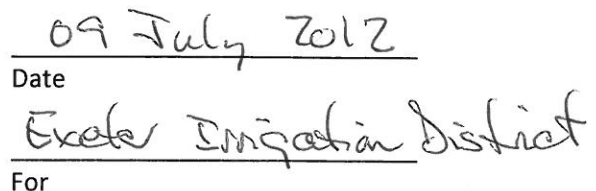 09 July 2012
Date
Exeter Irrigation District
For